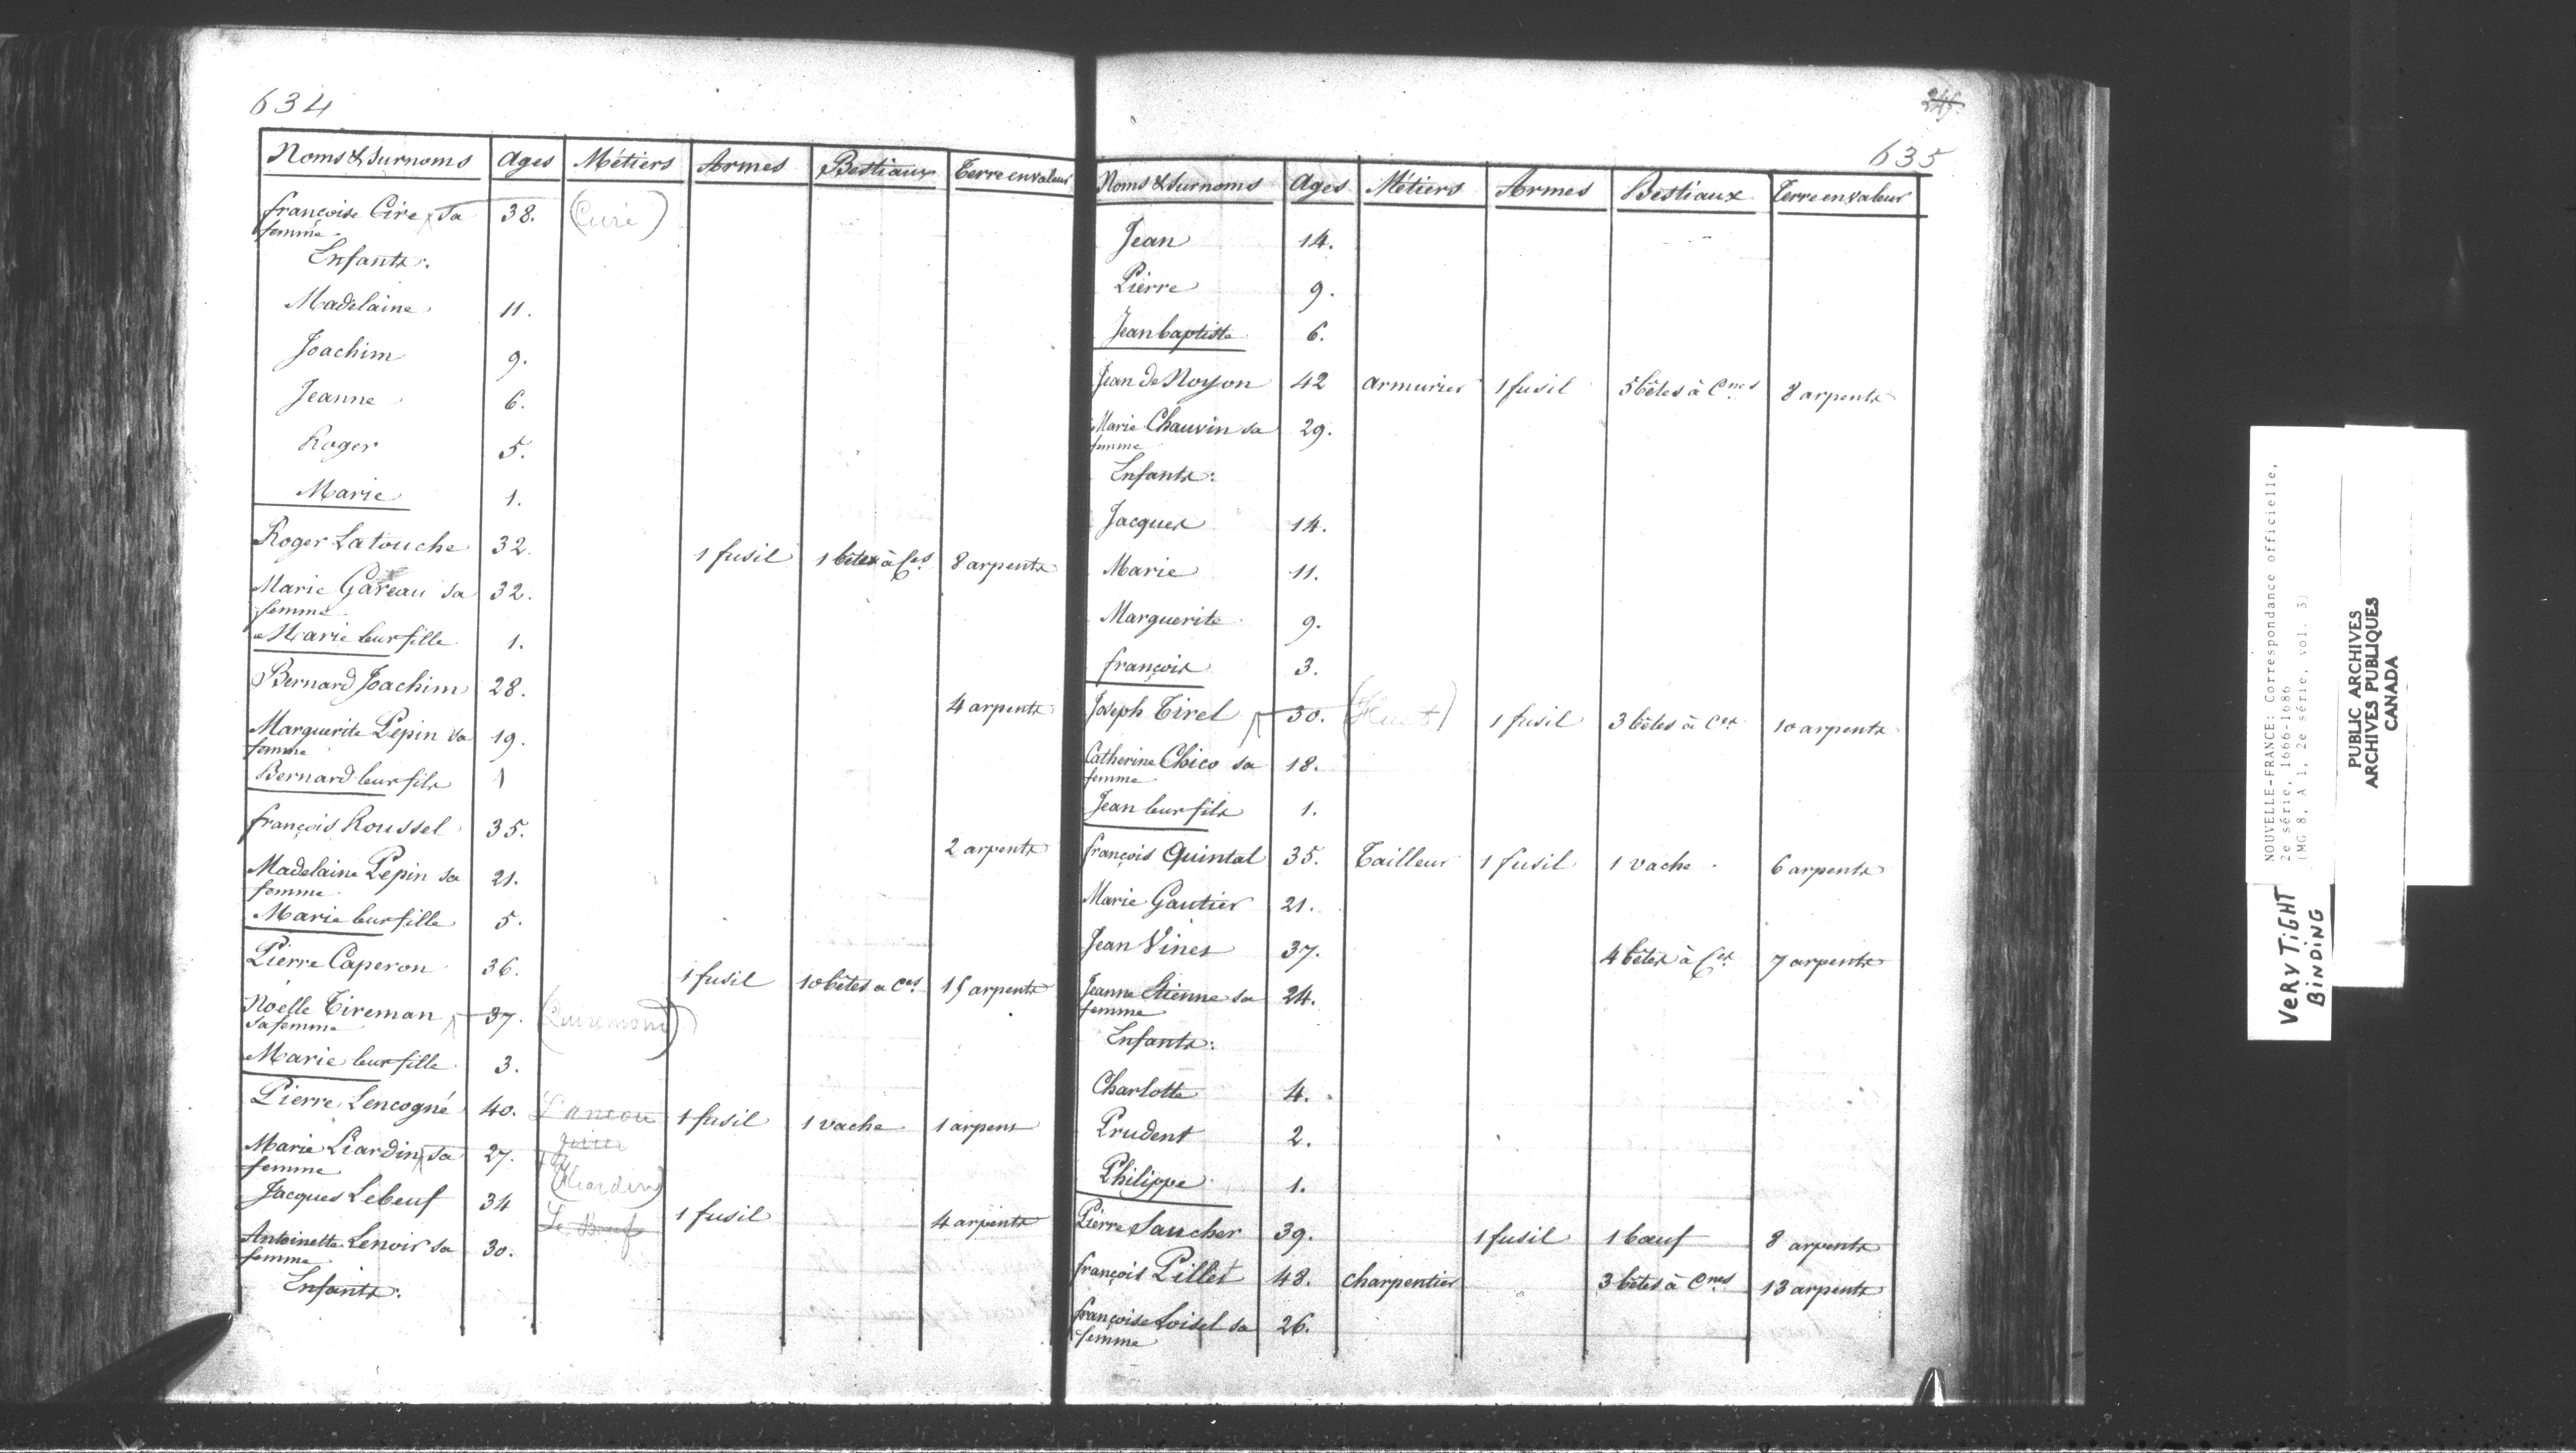 634
Noms & Surnoms Ages Métiers Armes Bestiaux Terre en valeur
françoise Cire sa 38. (Curé)
femme
Enfants:
Madelaine 11.
Joachim 9.
Jeanne 6.
Roger 5.
Marie 1.
Roger Latouche 32. 1 fusil 1 bêtes à Ces 8 arpents
Marie Gareau sa 32.
femme
Marie leur fille 1.
Bernard Joachim 28. 4 arpents
Marguerite Pepin sa 19.
femme
Bernard leur fils 1
françois Roussel 35. 2 arpents
Madelaine Pepin sa 21.
femme
Marie leur fille 5.
Pierre Caperon 36. 1 fusil 10 bêtes a Ces 15 arpents
Noëlle Tireman 37.
sa femme
Marie leur fille 3.
Pierre Lencogné 40. 1 fusil 1 vache 1 arpent
Marie Liardin sa 27.
femme
Jacques Lebeuf 34 Le Beuf 1 fusil 4 arpents
Antoinette Lenoir sa 30.
femme
Enfants:
635
Noms & Surnoms Ages Métiers Armes Bestiaux Terre en valeur
Jean 14.
Pierre 9.
Jean baptiste 6.
Jean de Noyon 42 armurier 1 fusil 5 bêtes à Cnes 8 arpents
Marie Chauvin sa 29.
femme
Enfants:
Jacques 14.
Marie 11.
Marguerite 9.
françois 3.
Joseph Tirel 30. 1 fusil 3 bêtes à Ces 10 arpents
Catherine Chico sa 18.
femme
Jean leur fils 1.
françois Quintal 35. Tailleur 1 fusil 1 vache 6 arpents
Marie Gautier 21.
Jean Vines 37. 4 bêtes à Ces 7 arpents
Jeanne Etienne sa 24.
femme
Enfants:
Charlotte 4.
Prudent 2.
Philippe 1.
Pierre Saucher 39. 1 fusil 1 bœuf 8 arpents
françois Pillet 48. charpentier 3 bêtes à Cnes 13 arpents
françoise Loisel sa 26.
femme
NOUVELLE-FRANCE: Correspondance officielle,
2e série, 1666-1686
(MG 8, A 1, 2e série, vol. 3)
VERY TIGHT
BINDING
PUBLIC ARCHIVES
ARCHIVES PUBLIQUES
CANADA